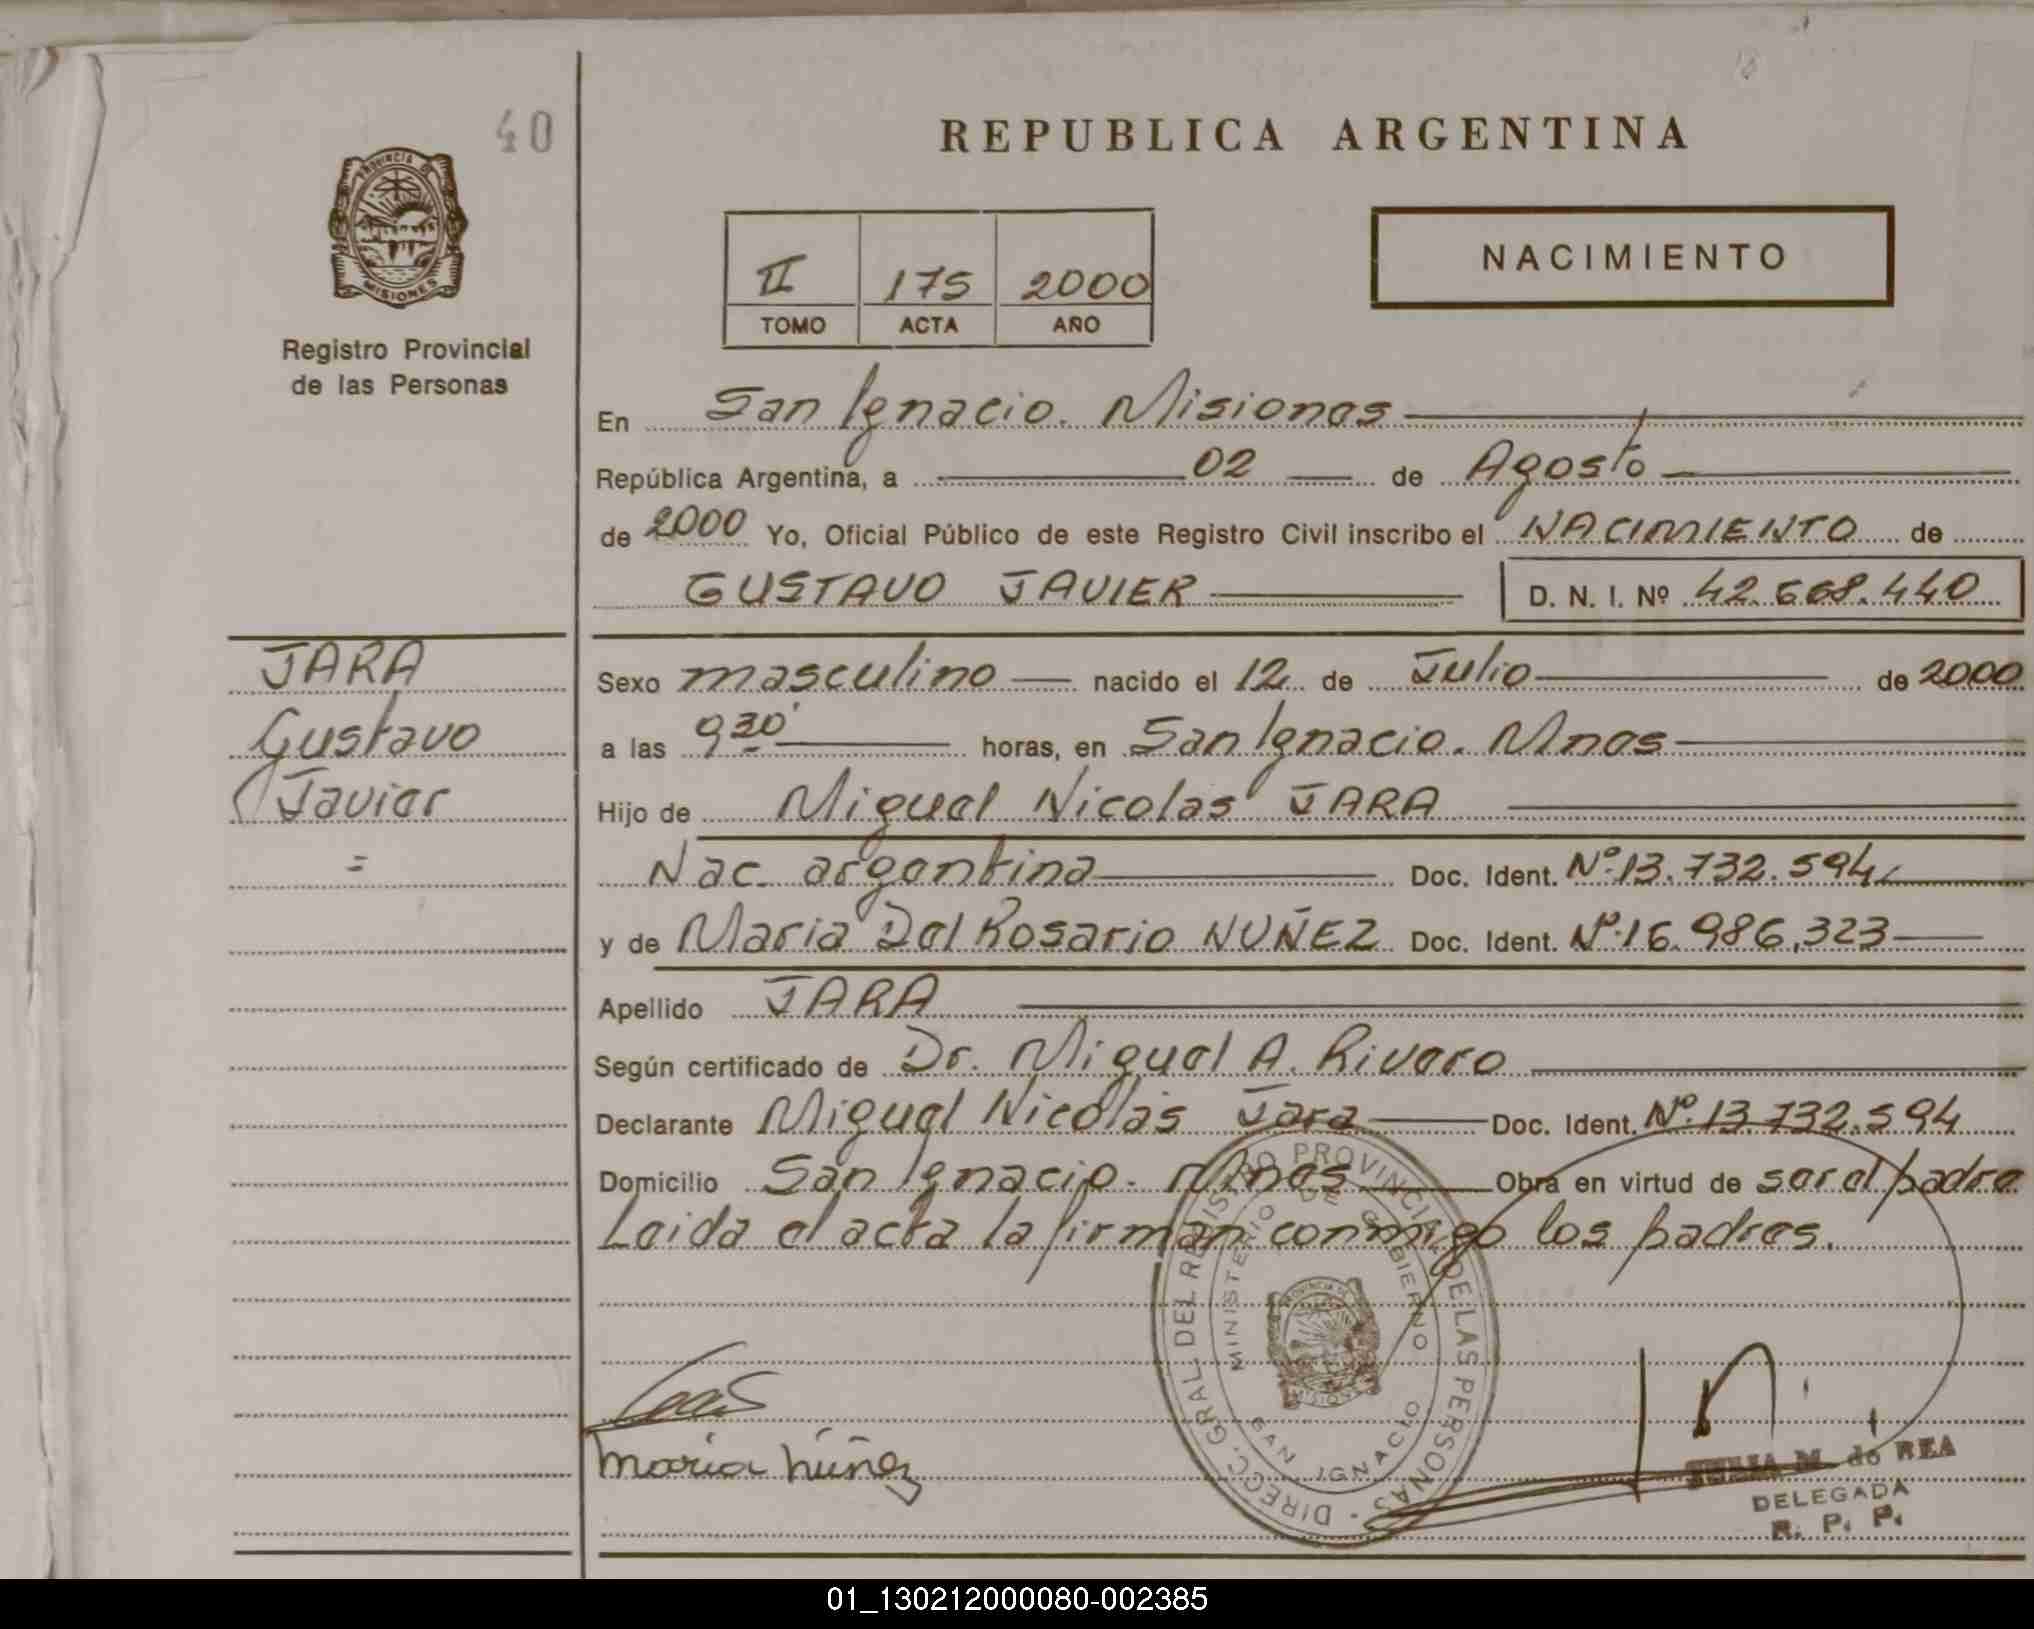 40
REPUBLICA ARGENTINA
PROVINCIA DE
MISIONES
Registro Provincial
de las Personas
II 175 2000
TOMO ACTA AÑO
NACIMIENTO
En San Ignacio. Misiones
República Argentina, a 02 de Agosto
de 2000 Yo, Oficial Público de este Registro Civil inscribo el NACIMIENTO de
GUSTAVO JAVIER D. N. I. Nº 42.668.440
JARA
Gustavo
Javier
=
Sexo masculino nacido el 12 de Julio de 2000
a las 9 30' horas, en San Ignacio. Mnes
Hijo de Miguel Nicolas JARA
Nac. argentina Doc. Ident. Nº 13.732.594
y de Maria Del Rosario NUÑEZ Doc. Ident. Nº 16.986.323
Apellido JARA
Según certificado de Dr. Miguel A. Rivero
Declarante Miguel Nicolas Jara Doc. Ident. Nº 13.732.594
Domicilio San Ignacio. Mnes Obra en virtud de ser el padre
Leida el acta la firman conmigo los padres.
DIRECC. GRAL DEL REGISTRO PROVINCIAL DE LAS PERSONAS
MINISTERIO DE GOBIERNO
PROVINCIA DE
MISIONES
SAN IGNACIO
Maria Núñez
JULIA M. de REA
DELEGADA
R. P. P.
01_130212000080-002385